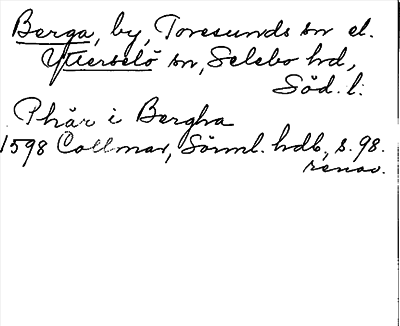 Berga, by, Toresunds sn el.
Ytterselö sn, Selebo hd,
Söd. l.
Phår i Bergha
1598 Collmar, Sörml. hdb, s. 98.
renov.